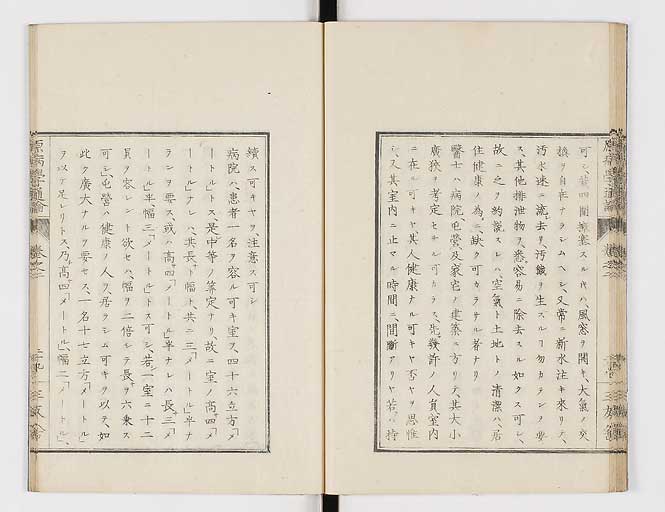 可シ、
風窓ヲ開キ、大氣ノ交
換ヲ自在ナラシムヘシ、又常ニ新水注キ來リテ、
汚水速ニ流去リ、汚穢ヲ生スルヿ勿カランヲ要
ス、其他排泄物ヲ悉容易ニ除去スル如クス可シ、
故ニ之ヲ約説スレハ、空氣ト土地トノ清潔ハ、居
住健康ノ為ニ缺ク可カラサル者ナリ
醫士ハ病院屯營及家宅ノ建築ニ方リテ、其大小
廣狹ヲ考定セサル可カラス、先幾許ノ人員室内
ニ在ル可キヤ、其人健康ナル可キヤ否ヤヲ思惟
シ、又其室内ニ止マル時間ニ、間断アリヤ、若クハ持
續ス可キヤヲ、注意ス可シ
病院ハ患者一名ヲ容ル可キ室ヲ、四十六立方「メ
ートル」トス、是中等ノ算定ナリ、故ニ室ノ高サ四「メ
ートル」ナレハ、其長サト幅ト、共ニ三「メートル」半ナ
ランヲ要ス、或ハ高サ四「メートル」半ナレハ、長サ三「メ
ートル」半、幅三「メートル」トス可シ、若シ一室ニ十二
員ヲ容レント欲セハ、幅ヲ二倍シテ、長サヲ六乗ス
可シ、屯營ハ健康ノ人ヲ居ラシム可キヲ以テ、如
此ク廣大ナルヲ要セス、一名十七立方「メートル」
ヲ以テ足レリトス、乃高サ四「メートル」、幅二「メートル」、
原病學通論
巻之二
三友舎